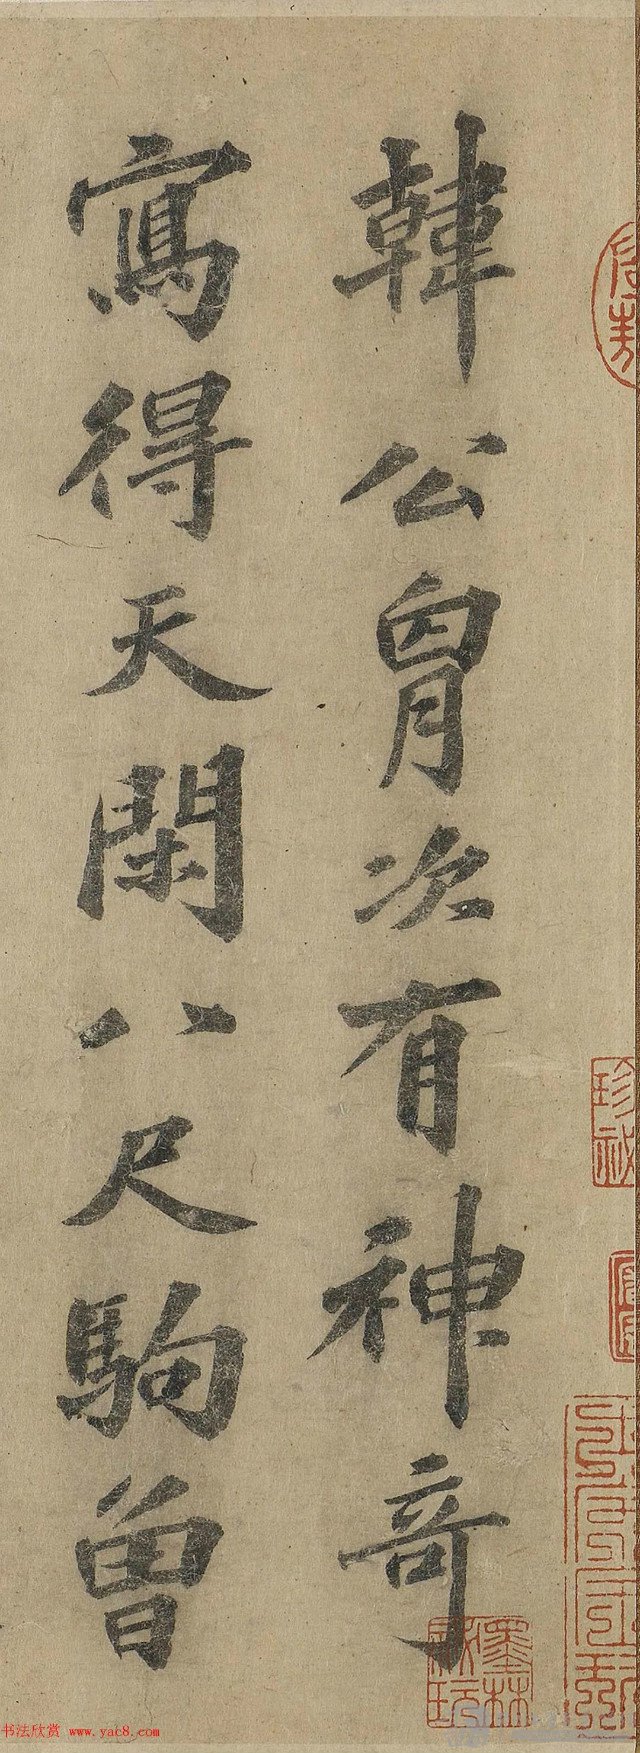 韓公胷次有神奇
寫得天閑八尺駒曾
墨林
书法欣赏 www.yac8.com